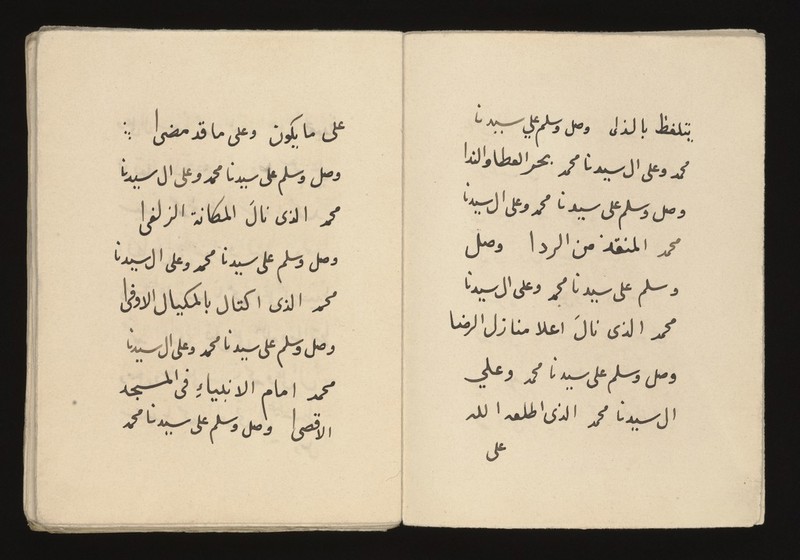 يتلفظ بالذلى وصل وسلم على سيدنا
محمد وعلى ال سيدنا محمد بحر العطا والندا
وصل وسلم على سيدنا محمد وعلى ال سيدنا
محمد المنقذ من الردا وصل
وسلم على سيدنا محمد وعلى ال سيدنا
محمد الذى نالَ اعلا منازل الرضا
وصل وسلم على سيدنا محمد وعلي
ال سيدنا محمد الذى اطلعه الله
على
على ما يكون وعلى ما قد مضى
وصل وسلم على سيدنا محمد وعلى ال سيدنا
محمد الذى نالَ المكانة الزلفى
وصل وسلم على سيدنا محمد وعلى ال سيدنا
محمد الذى اكتال بالمكيال الاوفى
وصل وسلم على سيدنا محمد وعلى ال سيدنا
محمد امام الانبياءِ فى المسجد
الاقصى وصل وسلم على سيدنا محمد